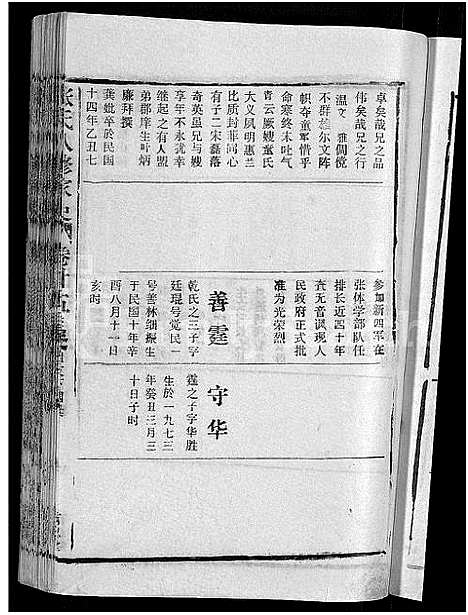 卓矣哉兄之品
伟矣哉兄之行
温文 雅倜傥
不群雄尔文阵
帜夺童军惜乎
命蹇终未吐气
青云厥嫂童氏
大义夙明惠兰
比质封菲同心
有子二宋磊落
奇英虽兄与嫂
享年不永犹幸
继起之有人盟
弟郡庠生叶炳
廉拜撰
龚妣卒於民国
十四年乙丑七
参加新四军在
张体学部队任
排长近四十年
查无音讯现人
民政府正式批
准为光荣烈
善霆
乾氏之三子字
廷琨号觉民一
号善林细振生
于民国十年辛
酉八月十一日
亥时
守华
霆之子字华胜
生於一九七三
年癸丑三月三
十日子时